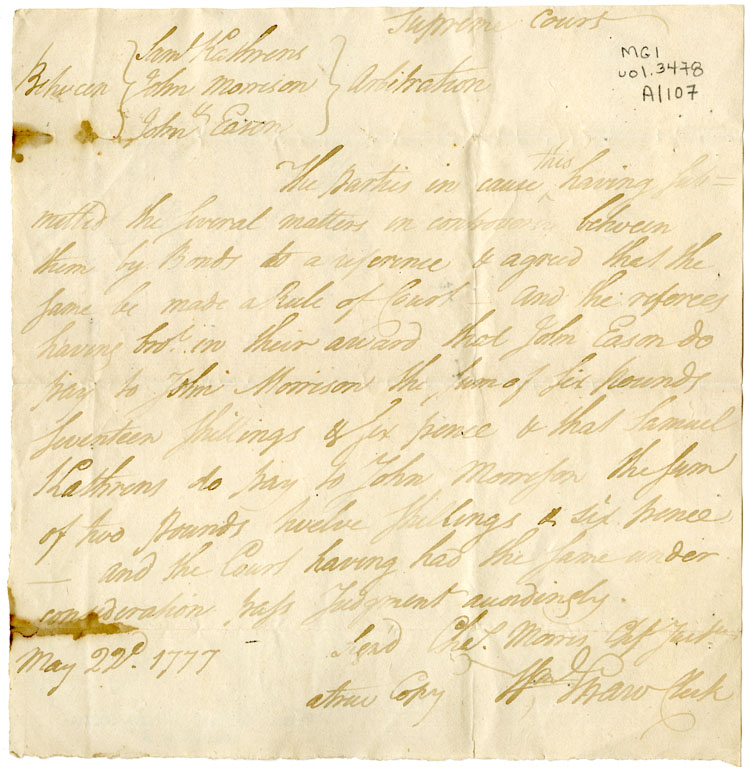 Supreme Court
MG1
vol. 3478
A/107
Saml. Kathrens
Between John Morrison Arbitration
John Eason
The parties in this cause having sub=
mitted the several matters in between
them by Bonds to a reference & agreed that the
same be made a Rule of Court - and the referees
having brot. in their award that John Eason do
pay to John Morrison the sum of six Pounds
seventeen shillings & six pence & that Samuel
Kathrens do pay to John Morrison the sum
of two Pounds twelve shillings & six pence
— and the Court having had the same under
consideration pass Judgment accordingly.
Sign'd Chs. Morris Chf Justice
May 22d. 1777
a true Copy Wm Shaw Clerk